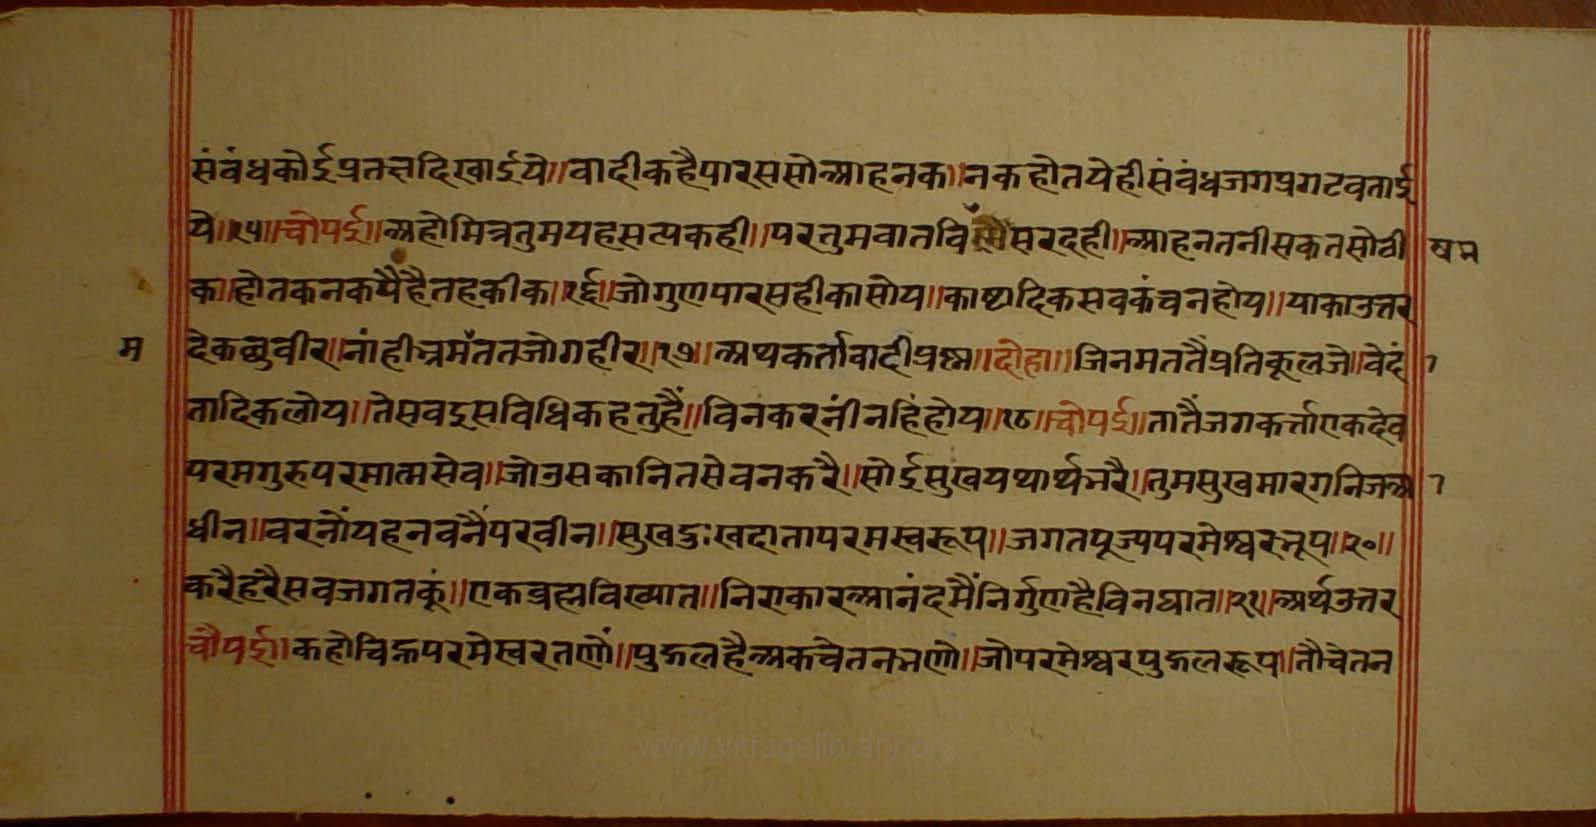 संवंधकोईप्रतक्षदिखाईये॥वादीकहैपारससोआहनक॥नकहोतयेहीसंवंधजगप्रगटवताई
ये॥१५॥चोपई॥अहोमित्रतुमयहसत्यकही॥परतुमवातविंसरदही॥आहनतनीसकतसोठी षम
क॥होतकनकयैंहैतहकीक॥१६॥जोगुणपारसहीकासोय॥काष्टादिकसवकंचनहोय॥याकाउत्तर
म देकछुवीर॥नांहीभ्रमंततजोगहीर॥१७॥अथकर्तावादीप्रष्ण॥दोहा॥जिनमततैंप्रतिकूलजे॥वेदं १
तादिकलोय॥तेसवइसविधिकहतुहैं॥विनकरनींनहिंहोय॥१८॥चोपई॥तातैंजगकर्त्ताएकदेव
परमगुरुपरमात्मसेव॥जोउसकानितसेवनकरै॥सोईसुखयथार्थभरै॥तुमसुखमारगनिजआ १
धीन॥वरनौंयहनवनैंपरवीन॥सुखदुःखदातापरमस्वरूप॥जगतपूज्यपरमेश्वरभूप॥२०॥
करैहरैसवजगतकूं॥एकब्रह्मविख्यात॥निराकारआनंदमैंनिर्गुणहैविनघात॥२१॥अर्थउत्तर
चौपई॥कहोचिह्नपरमेस्वरतणों॥पुद्गलहैअकचेतनभणो॥जोपरमेश्वरपुद्गलरूप॥तौचेतन
www.vitragelibrary.org